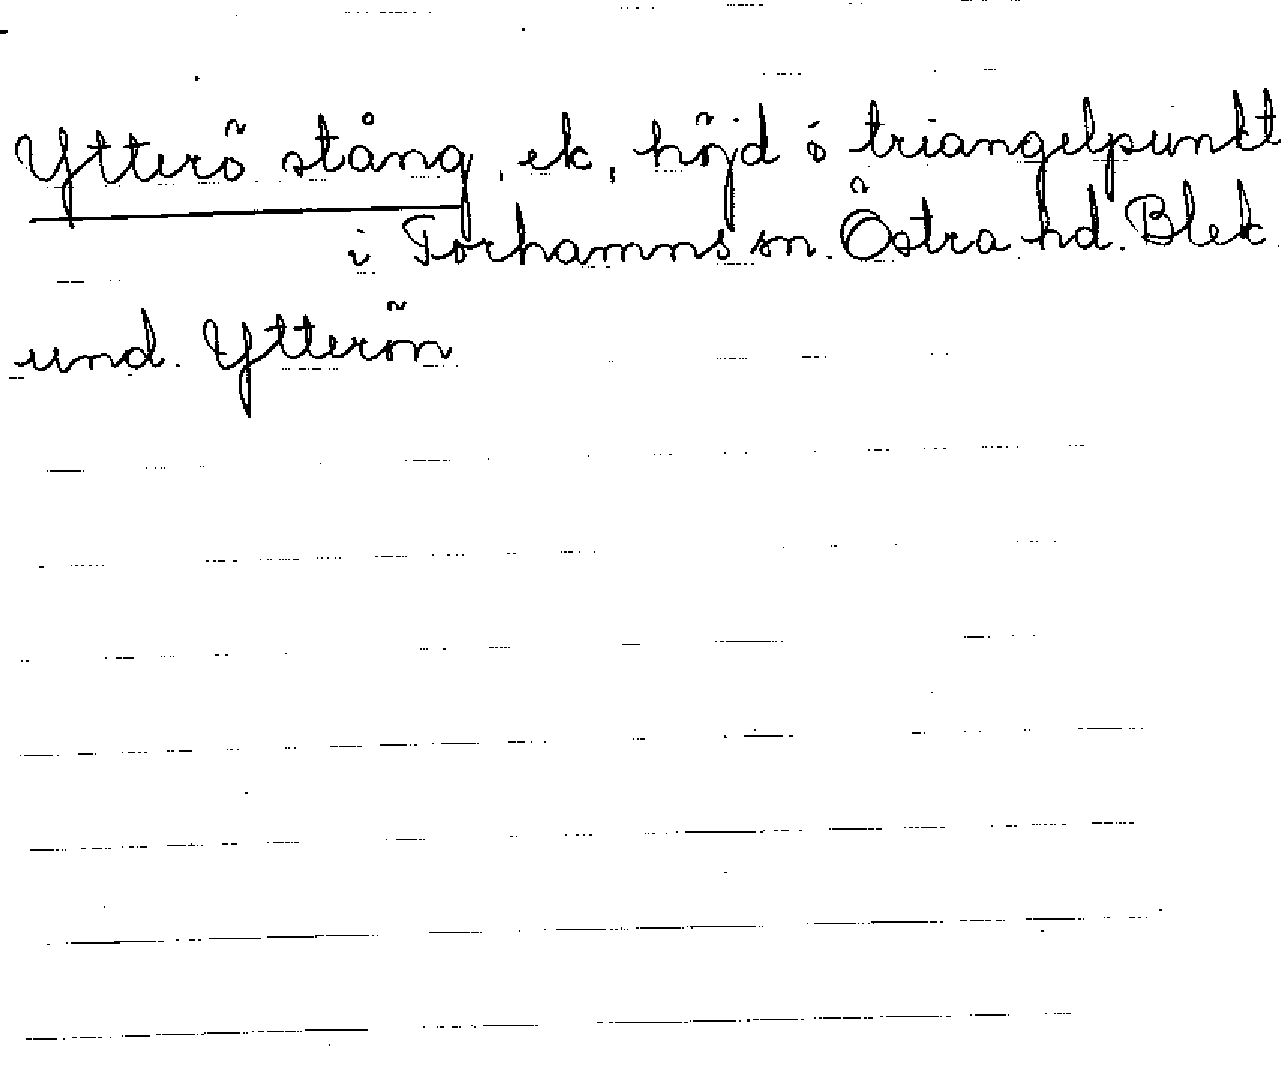 Ytterö stång, ek, höjd ö triangelpunkt
i Torhamns sn. Östra hd. Blek.
und. Ytterön